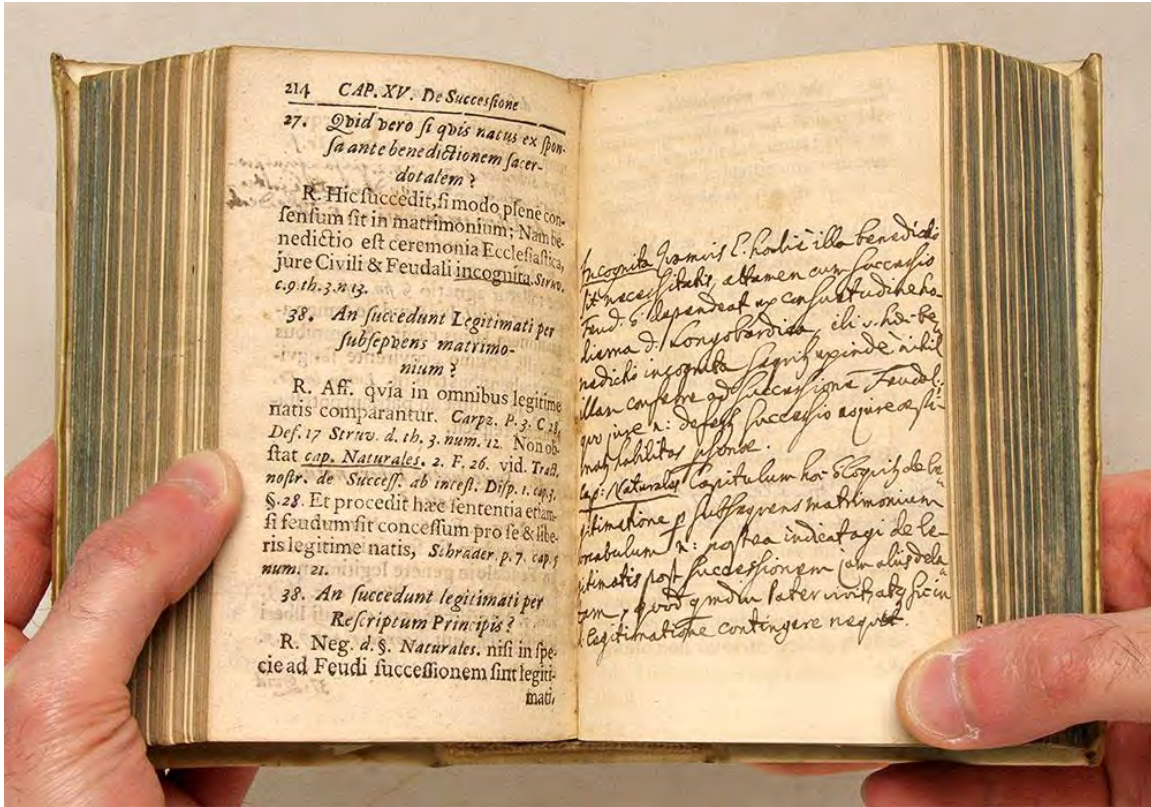 214 CAP. XV. De Succeſſione
27. Qvid vero ſi qvis natus ex ſpon-
ſa ante benedictionem ſacer-
dotalem?
R. Hic ſuccedit, ſi modo plene con-
ſenſum ſit in matrimonium; Nam be-
nedictio eſt ceremonia Eccleſiaſtica,
jure Civili & Feudali incognita. Struv.
c. 9. th. 3. n 13.
38. An ſuccedunt Legitimati per
ſubſeqvens matrimo-
nium?
R. Aff. qvia in omnibus legitime
natis comparantur. Carpz. P. 3. C 28,
Def. 17 Struv. d. th. 3. num. 12. Non ob-
ſtat cap. Naturales. 2. F. 26. vid. Tract.
noſtr. de Succeſſ. ab inteſt. Diſp. 1. cap. 3.
§. 28. Et procedit hæc ſententia etiam
ſi feudum ſit conceſſum pro ſe & libe-
ris legitime natis, Schrader. p. 7. cap. 5
num. 21.
38. An ſuccedunt legitimati per
Reſcriptum Principis?
R. Neg. d. §. Naturales. niſi in ſpe-
cie ad Feudi ſucceſſionem ſint legiti-
mati,
Incognita Quamvis E. hodie illa benedictio
ſit neceſſitatis, attamen cum ſucceſſio
Feud. dependeat ex conſuetudine ho-
dierna d. Longobardica, ibi v. be-
nedictio incognita exinde nihil
illam conferre ad ſucceſſionem Feudal.
quo jure n: ſucceſſio
Cap: Naturales Capitulum hoc de le-
gitimatione ꝑ ſubſequens matrimonium
vocabulum n: poſtea indicat agi de le-
gitimatis poſt ſucceſſionem jam aliis dela-
tam, quod Pater vivit, ſic in
Legitimatione contingere nequit.